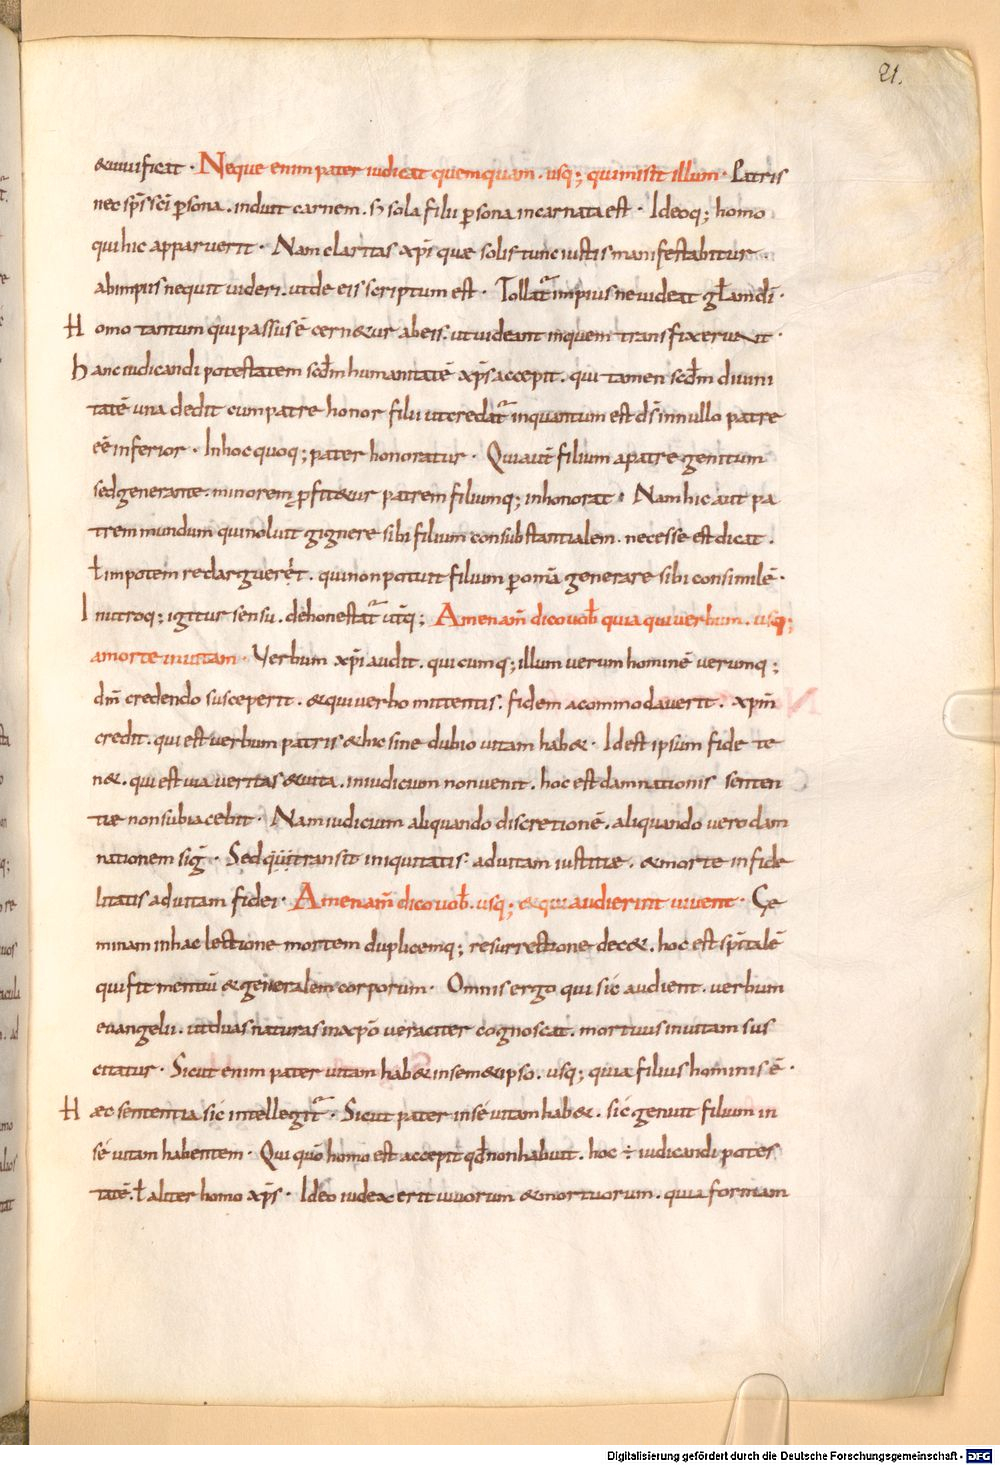 21.
&uiuificat · Neque enim pater iudicat quemquam . usq; qui misit illum · Patris
nec sp̄s sc̄i ꝑsona . induit carnem . sꝫ sola filii ꝑsona incarnata est · Ideoq; homo
qui hic apparuerit · Nam claritas xp̄i quæ solis tunc iustis manifestabitur .
ab impiis nequit uideri . ut de eis scriptum est · Tollat᷑ impius ne uideat gƚam di̅ ·
Homo tantum qui passus ē cern&ur ab eis . ut uideant in quem transfixerunt ·
hanc iudicandi potestatem scd̄m humanitatē xp̄s accepit . qui tamen scd̄m diuini
tatē una dedit cum patre honor filii ut credat᷑ inquantum est ds̄ in nullo patre
eē inferior · In hoc quoq; pater honoratur · Qui aut̄ filium a patre genitum
sed generante . minorem ꝓfit&ur patrem filiumq; inhonorat · Nam hic aut pa
trem inuidum qui noluit gignere sibi filium consubstantialem . necesse est dicat .
ƚ impotem redarguer&̣ . qui non potuit filium ꝑ om̄a generare sibi consimilē ·
In utroq; igitur sensu . dehonestat᷑ utq̄; Amen am̄ dico uob̄ quia qui uerbum . usq;
a morte in uitam · Verbum xp̄i audit . quicumq; illum uerum hominē uerumq;
dm̄ credendo susceperit . & qui uerbo mittentis . fidem acommodauerit . xp̄m
credit . qui est uerbum patris & hic sine dubio uitam hab& · Id est ipsum fide te
n& . qui est uia ueritas & uita . in iudicium non uenit . hoc est damnationis senten
tiæ non subiacebit · Nam iudicium aliquando discretionē . aliquando uero dam
nationem sig̅ · Sed transit iniquitatis ad uitam iustitiæ . & morte infide
litatis ad uitam fidei · Amen am̄ dico uob̄ . usq; & qui audierint uiuent · Ge
minam in hac lectione mortem duplicemq; resurrectione doc& . hoc est sp̄italē
qui fit mentiū & generalem corporum · Omnis ergo qui sic audient . uerbum
euangelii . ut duas naturas in xp̄o ueraciter cognoscat . mortuus in uitam sus
citatur · Sicut enim pater uitam hab& in sem&ipso . usq; quia filius hominis ē ·
Hæc sententia sic intellegit᷑ · Sicut pater in sé uitam hab& . sic genuit filium in
sé uitam habentem · Qui quō homo est accepit qd̄ non habuit . hoc ÷ iudicandi potes
tatē . ƚ aliter homo xp̄s · Ideo iudex erit uiuorum & mortuorum . quia formam
Digitalisierung gefördert durch die Deutsche Forschungsgemeinschaft - DFG